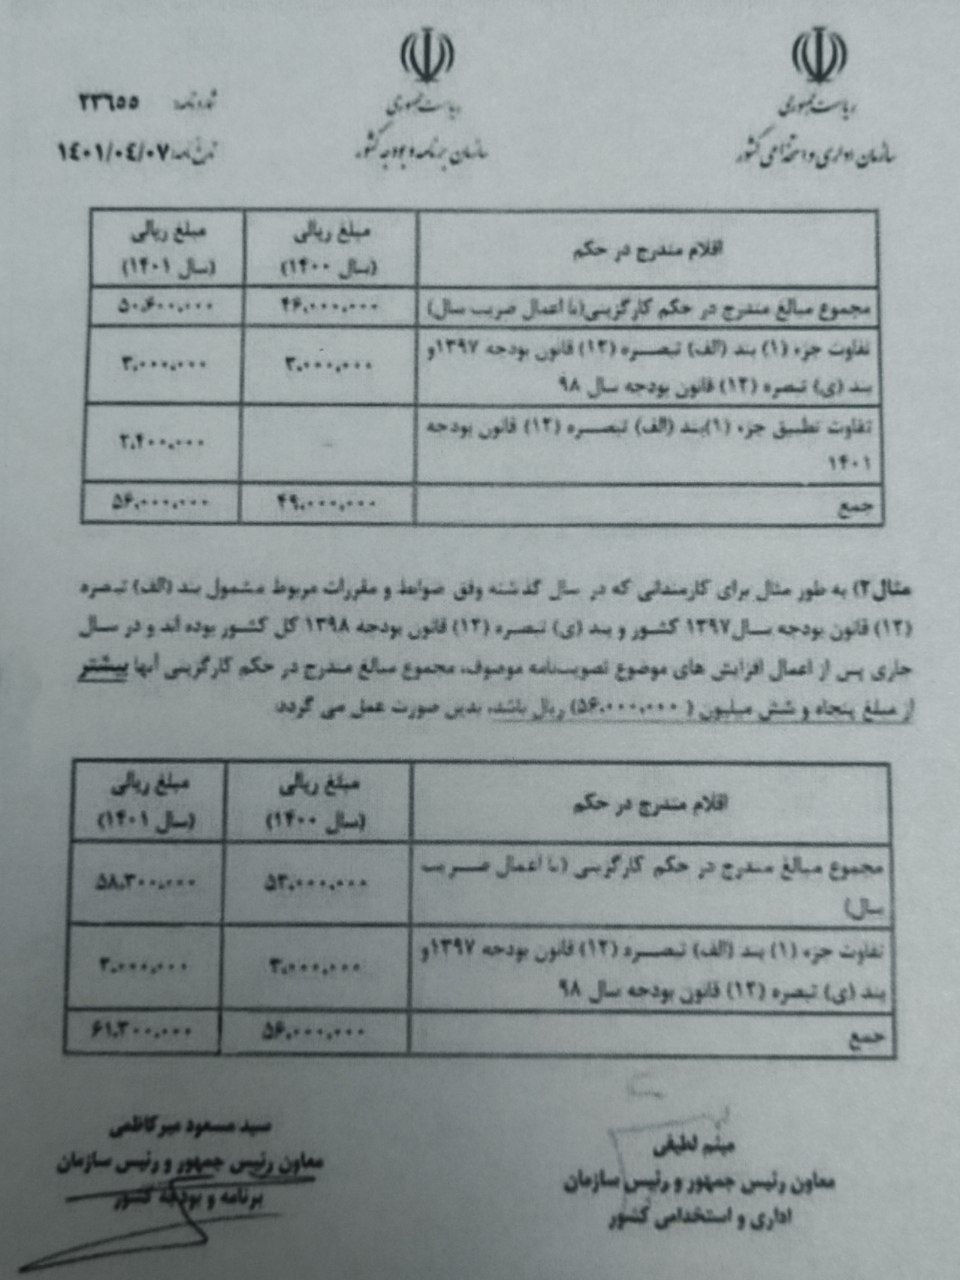 ریاست جمهوری
سازمان اداری و استخدامی کشور
ریاست جمهوری
سازمان برنامه و بودجه کشور
شماره نامه: ۲۳۶۵۵
تاریخ نامه: ۱۴۰۱/۰۴/۰۷
اقلام مندرج در حکم
مبلغ ریالی
(سال ۱۴۰۰)
مبلغ ریالی
(سال ۱۴۰۱)
مجموع مبالغ مندرج در حکم کارگزینی(با اعمال ضریب سال) ۴۶،۰۰۰،۰۰۰ ۵۰،۶۰۰،۰۰۰
تفاوت جزء (۱) بند (الف) تبصره (۱۲) قانون بودجه ۱۳۹۷و
بند (ی) تبصره (۱۲) قانون بودجه سال ۹۸
۳،۰۰۰،۰۰۰ ۳،۰۰۰،۰۰۰
تفاوت تطبیق جزء (۱)بند (الف) تبصره (۱۲) قانون بودجه
۱۴۰۱
- ۲،۴۰۰،۰۰۰
جمع ۴۹،۰۰۰،۰۰۰ ۵۶،۰۰۰،۰۰۰
مثال۲) به طور مثال برای کارمندانی که در سال گذشته وفق ضوابط و مقررات مربوط مشمول بند (الف) تبصره
(۱۲) قانون بودجه سال۱۳۹۷ کشور و بند (ی) تبصره (۱۲) قانون بودجه ۱۳۹۸ کل کشور بوده اند و در سال
جاری پس از اعمال افزایش های موضوع تصویب‌نامه موصوف، مجموع مبالغ مندرج در حکم کارگزینی آنها بیشتر
از مبلغ پنجاه و شش میلیون ( ۵۶،۰۰۰،۰۰۰) ریال باشد، بدین صورت عمل می گردد:
اقلام مندرج در حکم
مبلغ ریالی
(سال ۱۴۰۰)
مبلغ ریالی
(سال ۱۴۰۱)
مجموع مبالغ مندرج در حکم کارگزینی (با اعمال ضریب
سال)
۵۳،۰۰۰،۰۰۰ ۵۸،۳۰۰،۰۰۰
تفاوت جزء (۱) بند (الف) تبصره (۱۲) قانون بودجه ۱۳۹۷و
بند (ی) تبصره (۱۲) قانون بودجه سال ۹۸
۳،۰۰۰،۰۰۰ ۳،۰۰۰،۰۰۰
جمع ۵۶،۰۰۰،۰۰۰ ۶۱،۳۰۰،۰۰۰
میثم لطیفی
معاون رئیس جمهور و رئیس سازمان
اداری و استخدامی کشور
سید مسعود میرکاظمی
معاون رئیس جمهور و رئیس سازمان
برنامه و بودجه کشور